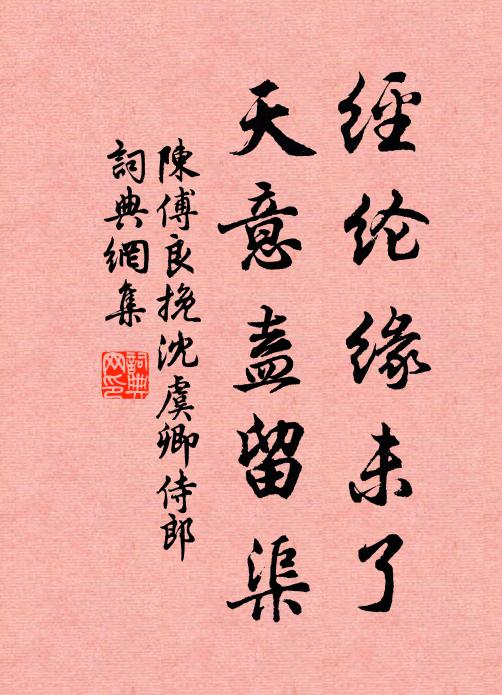 經纶缘未了
天意盍留渠
陳傅良挽沈虞卿侍郎
詞典網集
詞典網印